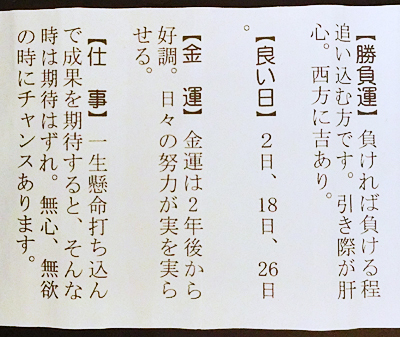 【勝負運】 負ければ負ける程
追い込む方です。引き際が肝
心。西方に吉あり。
【良い日】 2日、18日、26日
。
【金 運】 金運は2年後から
好調。日々の努力が実を実ら
せる。
【仕 事】 一生懸命打ち込ん
で成果を期待すると、そんな
時は期待はずれ。無心、無欲
の時にチャンスあります。